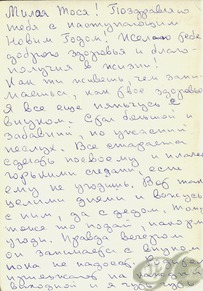 Милая Тося! Поздравляю
тебя с наступающим
Новым Годом! Желаю тебе
доброго здоровья и благо-
получия в жизни!
Как ты живёшь, чем зани-
маешься, как твоё здоровье
Я всё еще нянчусь с
внуком. Стал большой и
забавный, но ужасный
неслух. Все старается
сделать по своему и плачет
горькими слезами, если
ему не угодишь. Вот так
целыми днями и вожусь
с ним, да с дедом, тому
тоже то подай, накорми
угоди. Правда вечером
он занимается с внуком
пока не надоест.
приезжают на каждый
выходной и я